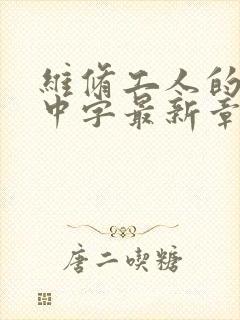 維脩工人的
中字最新章
唐二喫糖